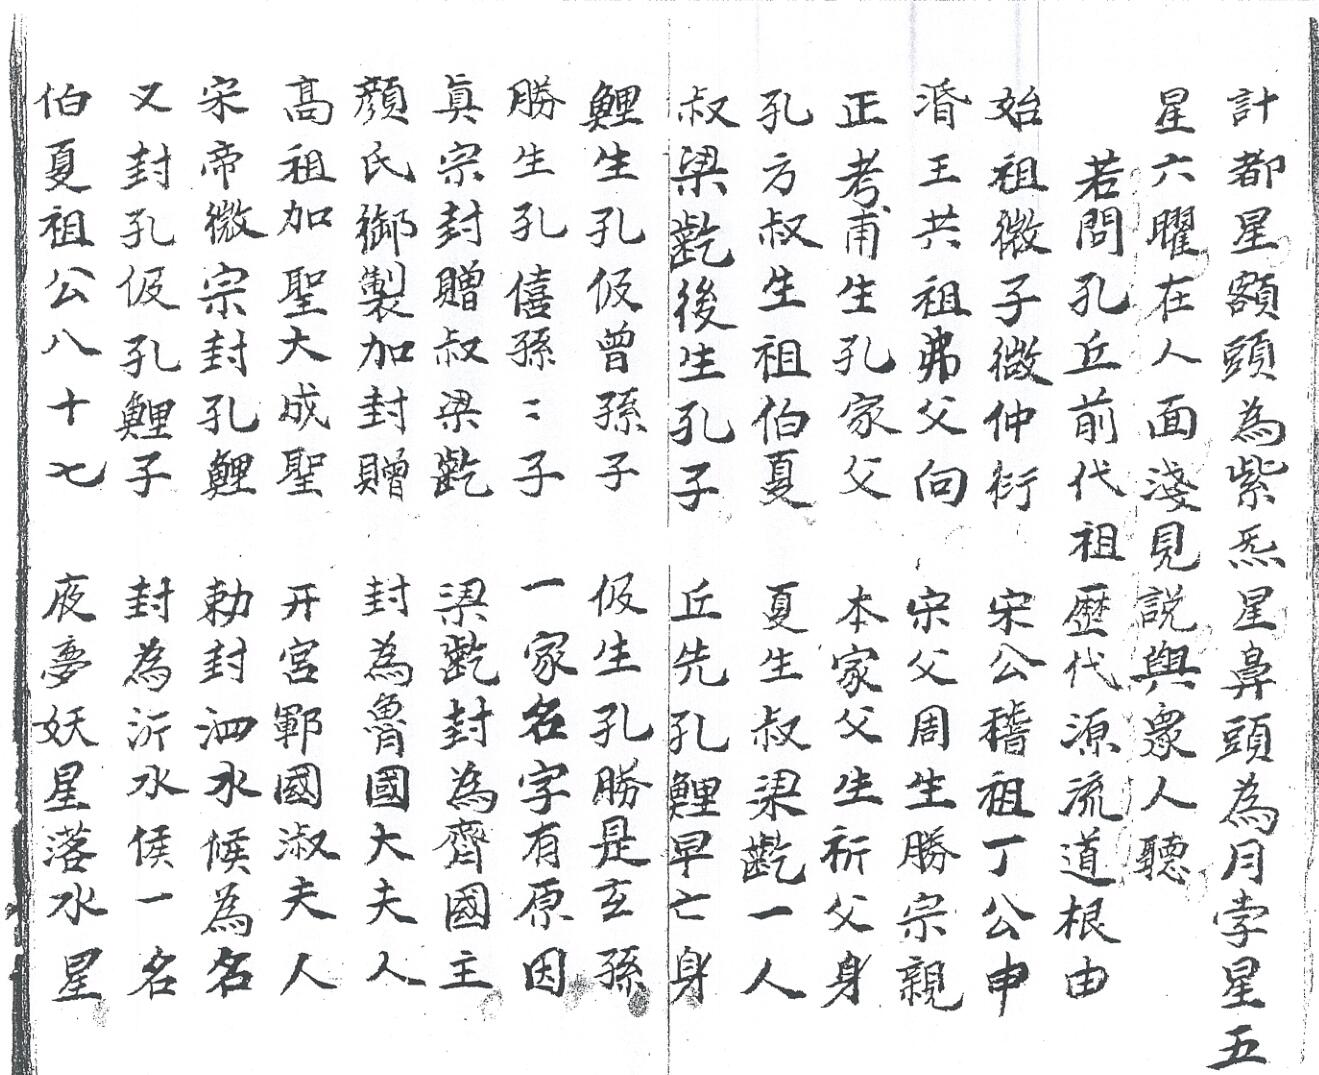 計都星額頭為紫炁星鼻頭為月孛星五
星六曜在人面淺見説與眾人聽
若問孔丘前代祖歷代源流道根由
始祖微子微仲衍宋公稽祖丁公申
湣王共祖弗父向宋父周生勝宗親
正考甫生孔家父本家父生祈父身
孔方叔生祖伯夏夏生叔梁齕一人
叔梁齕後生孔子丘先孔鯉早亡身
鯉生孔伋曾孫子伋生孔勝是玄孫
勝生孔僖孫〻子一家名字有原因
眞宗封贈叔梁齕梁齕封為齊國主
顏氏御製加封贈封為魯國大夫人
高祖加聖大成聖开宮鄆國淑夫人
宋帝微宗封孔鯉勅封泗水候為名
又封孔伋孔鯉子封為沂水侯一名
伯夏祖公八十七夜夢妖星落水星